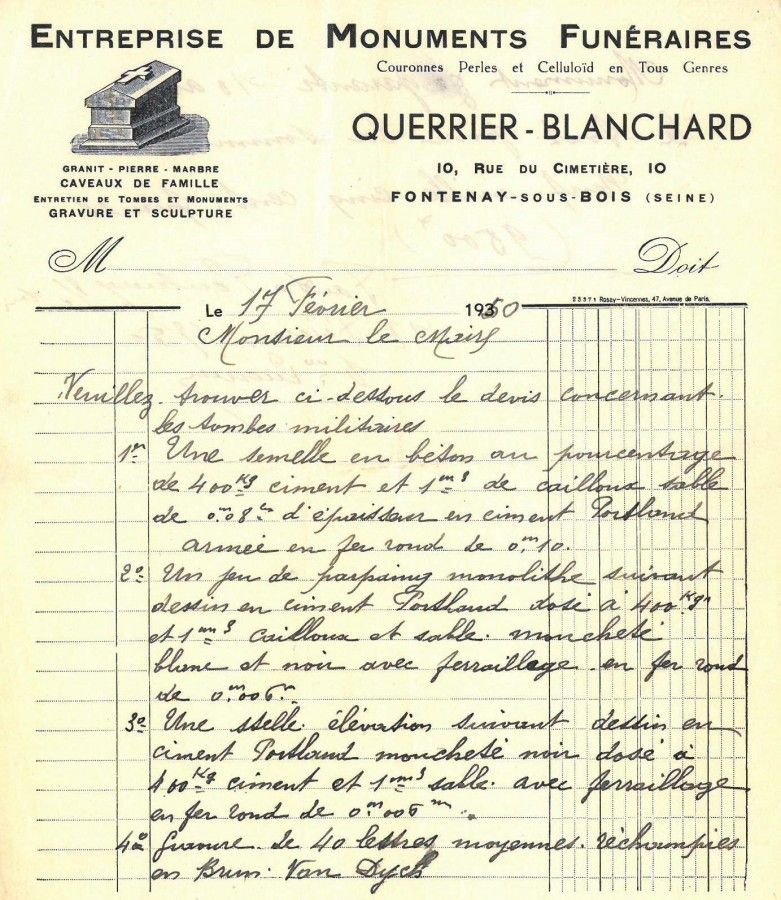 ENTREPRISE DE MONUMENTS FUNÉRAIRES
Couronnes Perles et Celluloïd en Tous Genres
QUERRIER - BLANCHARD
10, RUE DU CIMETIÈRE, 10
FONTENAY-SOUS-BOIS (SEINE)
GRANIT - PIERRE - MARBRE
CAVEAUX DE FAMILLE
ENTRETIEN DE TOMBES ET MONUMENTS
GRAVURE ET SCULPTURE
M Doit
23971 Rosay-Vincennes, 47, Avenue de Paris.
Le 17 Février 19350
Monsieur le Maire
Veuillez trouver ci-dessous le devis concernant
les tombes militaires
1er Une semelle en béton au pourcentage
de 400 Kg ciment et 1 m3 de cailloux sable
de 0m08 d'épaisseur en ciment Portland
armée en fer rond de 0m10.
2o Un jeu de parpaing monolithe suivant
dessin en ciment Portland dosé à 400 Kgr
et 1 m3 cailloux et sable. moucheté
blanc et noir avec ferraillage en fer rond
de 0m006m
3o Une stelle élévation suivant dessin en
ciment Portland moucheté noir dosé à
400 Kg ciment et 1 m3 sable. avec ferraillage
en fer rond de 0m006m.
4o Gravure de 40 lettres moyennes. réchampies
en Brun. Van Dyck